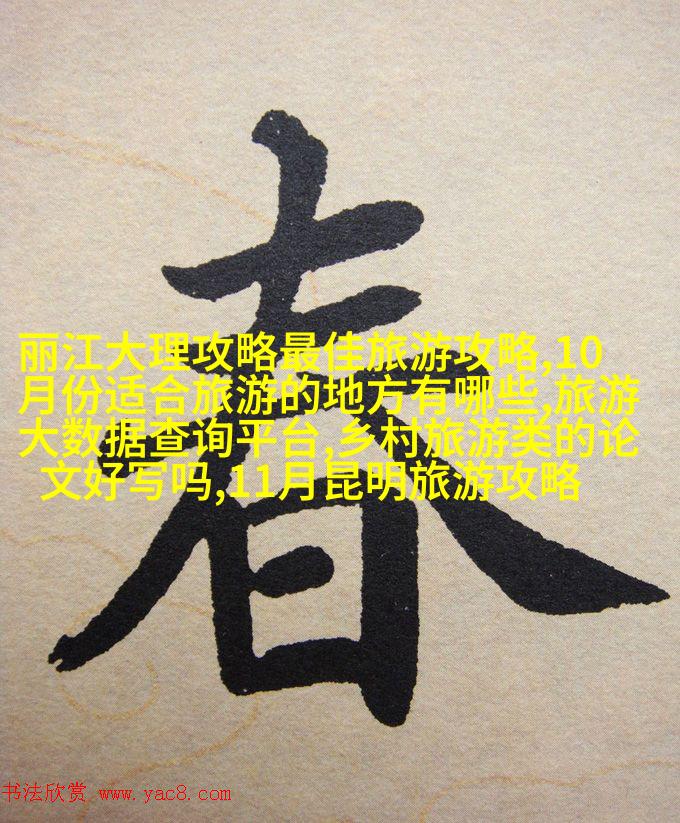 春
丽江大理攻略最佳旅游攻略,10
月份适合旅游的地方有哪些,旅游
大数据查询平台,乡村旅游类的论
文好写吗,11月昆明旅游攻略
书法欣赏 www.yac8.com